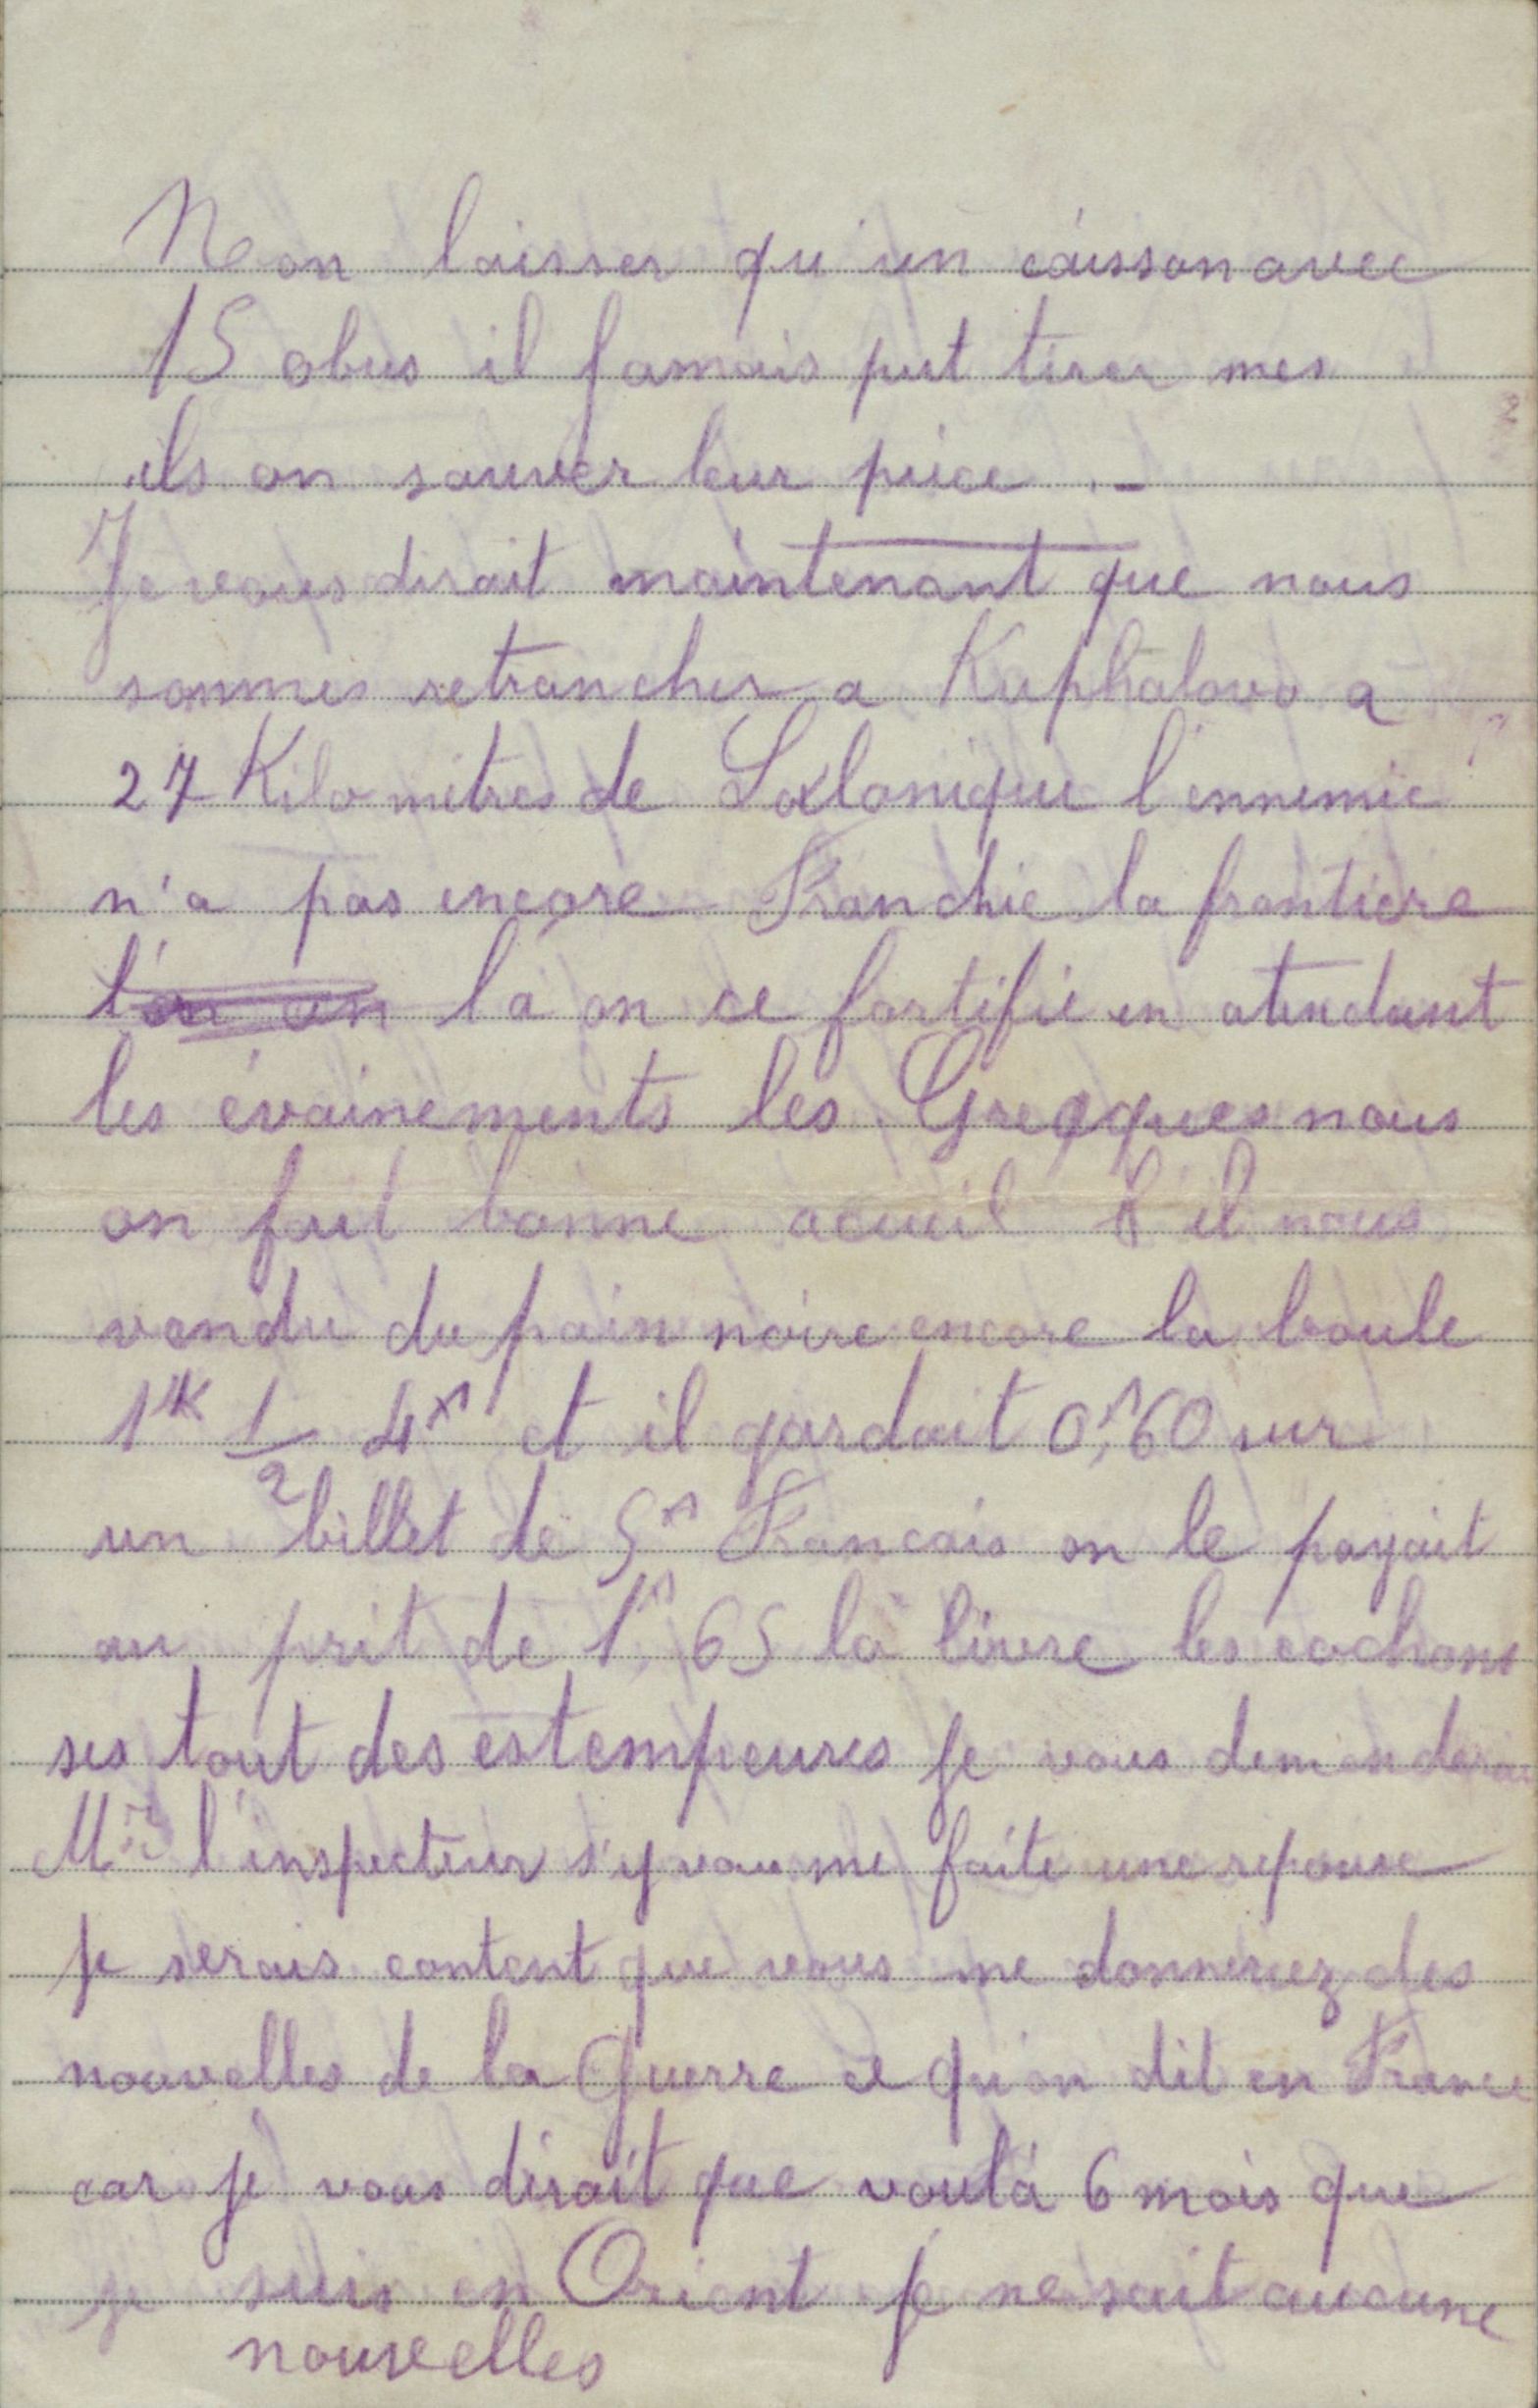 Ne on laisser qu'un caisson avec
15 obus il jamais put tirer mes
ils on sauver leur pièce .-
Je vous dirait maintenant que nous
sommes retrancher a Kuphalovo a
27 Kilomètres de Salonique l'ennemie
n'a pas encore Franchie la frontière
là on ce fortifie en atendant
les évainements les Grecques nous
on fait bonne acueil & il nous
vendu du pain noire encore la boule
1K 1/2 4f et il gardait 0f,60 sur
un billet de 5f Francais on le payait
au prit de 1f,65 la livre les cochons
ses tout des estempeures je vous demanderai
Mr l'inspecteur s'y vou me faite une reponse
je serais content que vous me donneriez des
nouvelles de la Guerre ce qu'on dit en France
car je vous dirait que voulà 6 mois que
je suis en Orient je ne sait aucune
nouvelles